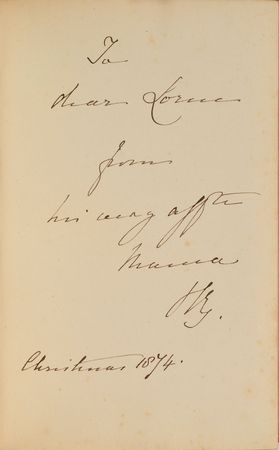 To
dear Lorne
from
his very affte
Mama
VRg.
Christmas 1874.